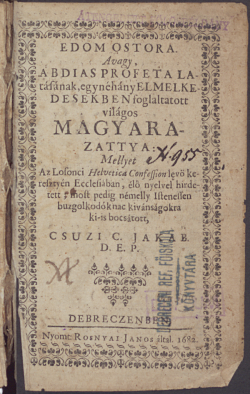 EDOM OSTORA.
Avagy,
ABDIAS PROFETA LA-
tásának, egynéhány ELMELKE-
DESEKBEN foglaltatott
világos
MAGYARA-
ZATTYA:
Mellyet N. 955
Az Losonci Helvetica Confession levö ke-
resztyén Ecclesiában, élö nyelvel hirde-
tett; most pedig némelly Istenessen
buzgolkodóknac kivánságokra
ki-is bocsátott,
CSUZI C. JAKAB.
D. E. P.
DEBRECZENBEN
Nyomt. ROSNYAI JANOS által. 1682.
DEBRECEN REF. FŐISKOLA
KÖNYVTÁRA